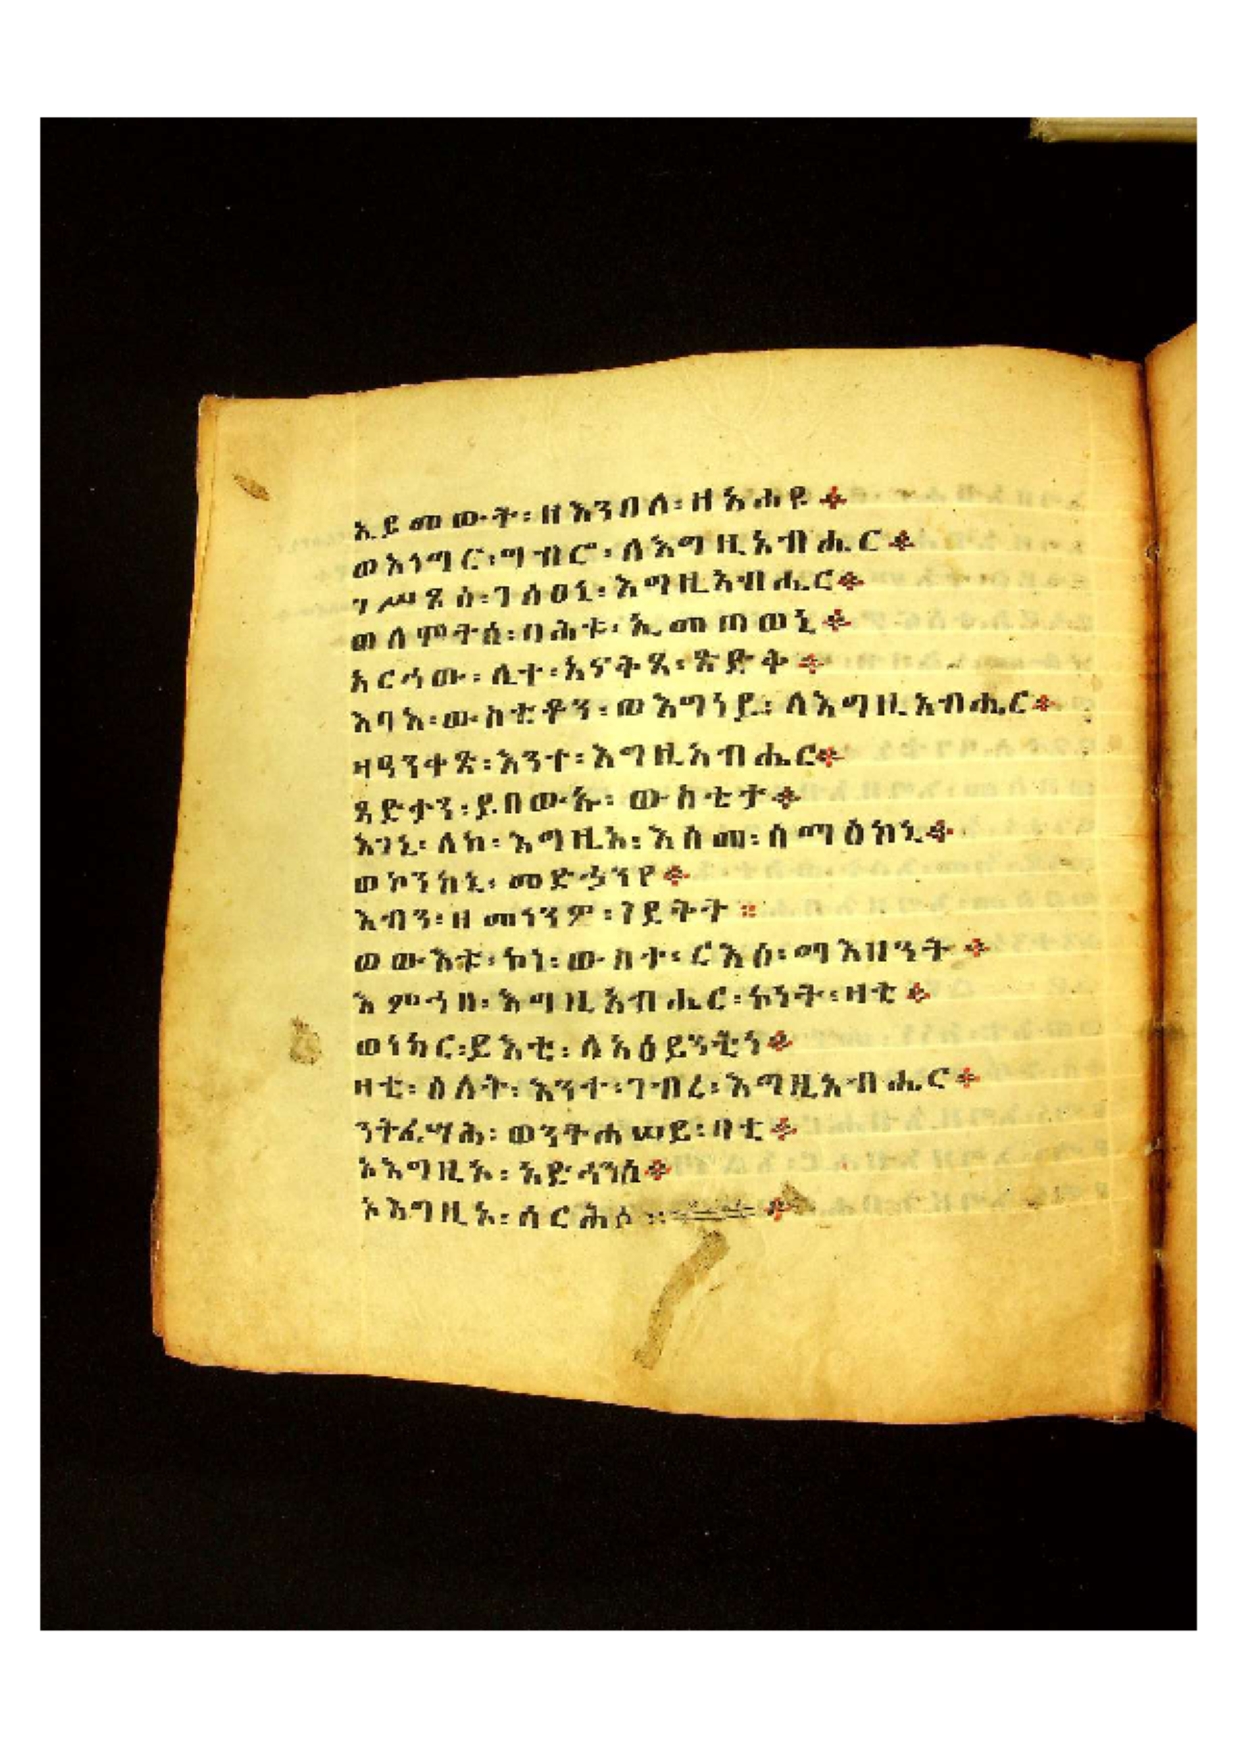 ኢይመውት፡ዘእንበለ፡ዘአሐዩ፨
ወእነግር፡ግብሮ፡ለእግዚአብሔር፨
ገሥጾሰ፡ገሠፀኒ፡እግዚአብሔር፨
ወለሞትሰ፡ባሕቱ፡ኢመጠወኒ፨
አርኅው፡ሊተ፡አናቅጸ፡ጽድቅ፨
እባእ፡ውስቴቶን፡ወእግነይ፡ለእግዚአብሔር፨
ዛዓንቀጽ፡እንተ፡እግዚአብሔር፨
ጻድቃን፡ይበውኡ፡ውስቴታ፨
እገኒ፡ለከ፡እግዚእ፡እስመ፡ሰማዕከኒ፨
ወኮንከኒ፡መድኃንየ፨
እብን፡ዘመነንዎ፡ነደቅት፨
ወውእቱ፡ኮነ፡ውስተ፡ርእሰ፡ማእዘንት፨
እምኀበ፡እግዚአብሔር፡ኮነት፡ዛቲ፨
ወነክር፡ይእቲ፡ለአዕይንቲነ፨
ዛቲ፡ዕለት፡እንተ፡ገብረ፡እግዚአብሔር፨
ንትፌሣሕ፡ወንትሐሠይ፡ባቲ፨
ኦእግዚኦ፡አድኅንሰ፨
ኦእግዚኦ፡ሠርሕሶ፡፡፨